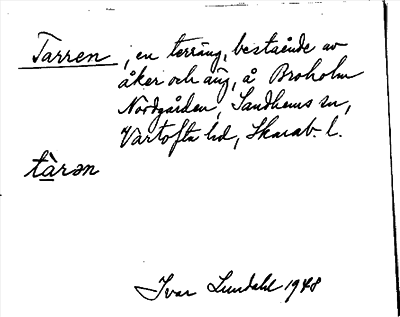 Tarren, en terräng, bestående av
åker och äng, å Broholm
Nordgården, Sandhems sn,
Vartofta hd, Skarab. l.
tàrən
Ivar Lundahl 1948